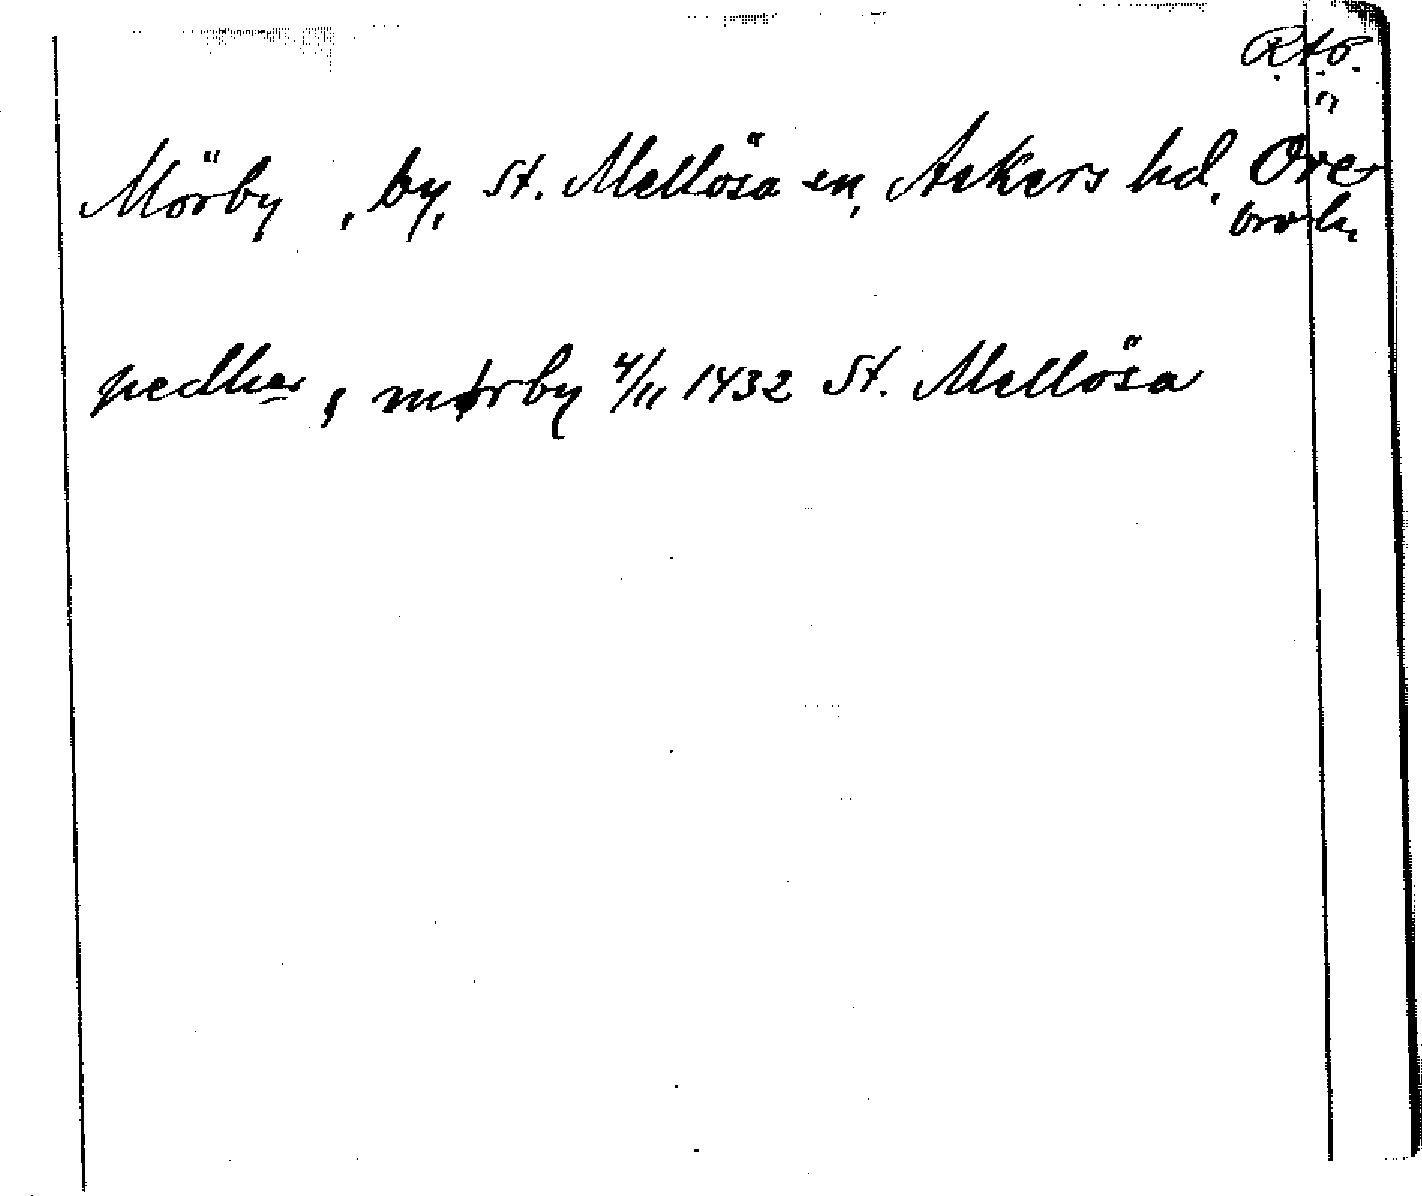 R.A.Ö.
Mörby, by, St. Mellösa sn, Askers hd, Öre-
bro l.
pedher, i mørby 4/11 1432 St. Mellösa